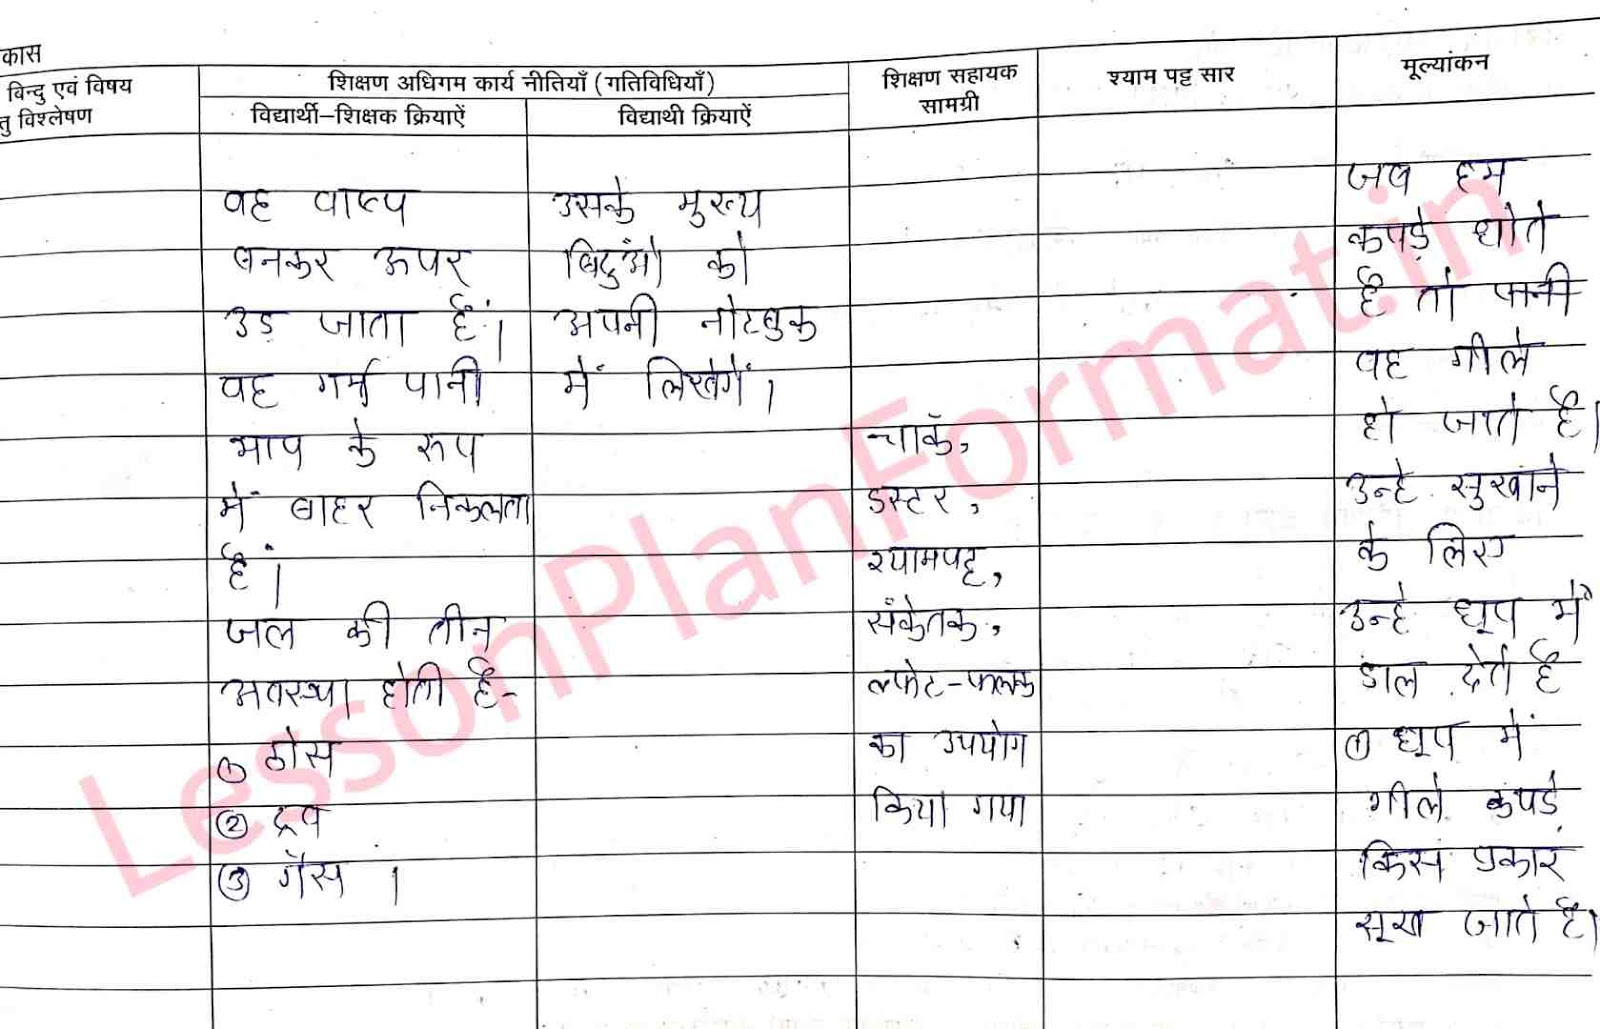 कास
बिन्दु एवं विषय
तु विश्लेषण
शिक्षण अधिगम कार्य नीतियाँ (गतिविधियाँ)
विद्यार्थी–शिक्षक क्रियाऐं
विद्याथी क्रियाऐं
शिक्षण सहायक
सामग्री
श्याम पट्ट सार
मूल्यांकन
वह वाष्प
बनकर ऊपर
उड़ जाता है।
वह गर्म पानी
भाप के रूप
में बाहर निकलता
है।
जल की तीन
अवस्था होती है-
① ठोस
② द्रव
③ गैस ।
उसके मुख्य
बिंदुओं को
अपनी नोटबुक
में लिखेगें।
चाक,
डस्टर,
श्यामपट्ट,
संकेतक,
लपेट-फलक
का उपयोग
किया गया
जब हम
कपड़े धोते
है तो पानी
वह गीले
हो जाते है।
उन्हे सुखाने
के लिए
उन्हे धूप में
डाल देते है
① धूप में
गीले कपडे
किस प्रकार
सूख जाते है।
LessonPlanFormat.in